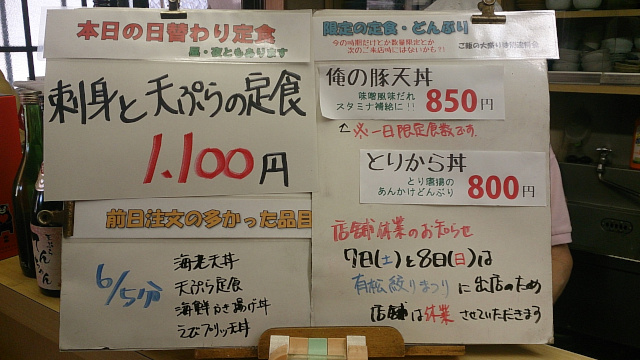 本日の日替わり定食
昼・夜ともあります
刺身と天ぷらの定食
1.100円
前日注文の多かった品目
6/5分
海老天丼
天ぷら定食
海鮮かき揚げ丼
えびフリッ天丼
限定の定食・どんぶり
今の時期だけとか数量限定とか
次のご来店時にはないかも?!
ご飯の大盛り
俺の豚天丼
味噌風味だれ
スタミナ補給に!!
850円
※一日限定食数です.
とりから丼
とり唐揚の
あんかけどんぶり
800円
店舗休業のお知らせ
7日(土)と8日(日)は
有松絞りまつりに出店のため
店舗は休業させていただきます